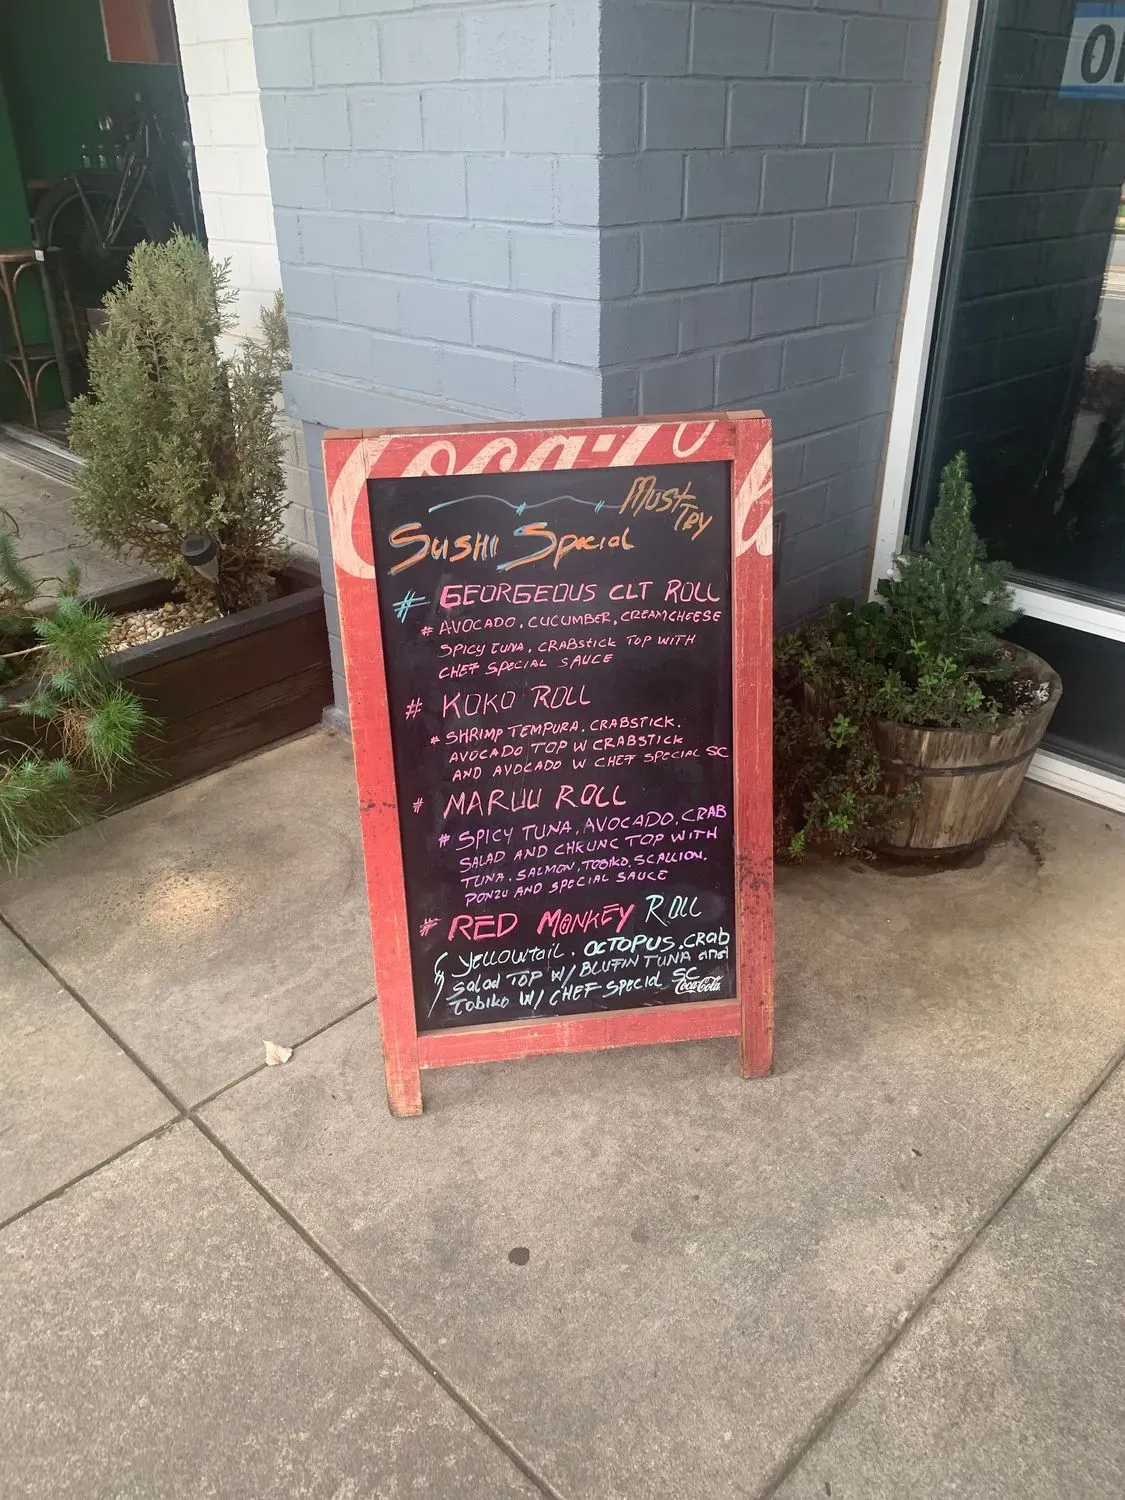 Coca-Co
Must
Try
Sushi Special
# GEORGEOUS CLT ROLL
# AVOCADO, CUCUMBER, CREAMCHEESE
SPICY TUNA, CRABSTICK TOP WITH
CHEF SPECIAL SAUCE
# KOKO ROLL
# SHRIMP TEMPURA, CRABSTICK.
AVOCADO TOP W CRABSTICK
AND AVOCADO W CHEF SPECIAL SC
# MARUU ROLL
# SPICY TUNA, AVOCADO, CRAB
SALAD AND CHRUNC TOP WITH
TUNA, SALMON, TOBIKO, SCALLION,
PONZU AND SPECIAL SAUCE
# RED MONKEY ROLL
Yellowtail, OCTOPUS, CRab
Salad TOP W/ BLUFIN TUNA and
Tobiko W/ CHEF Special SC
Coca-Cola